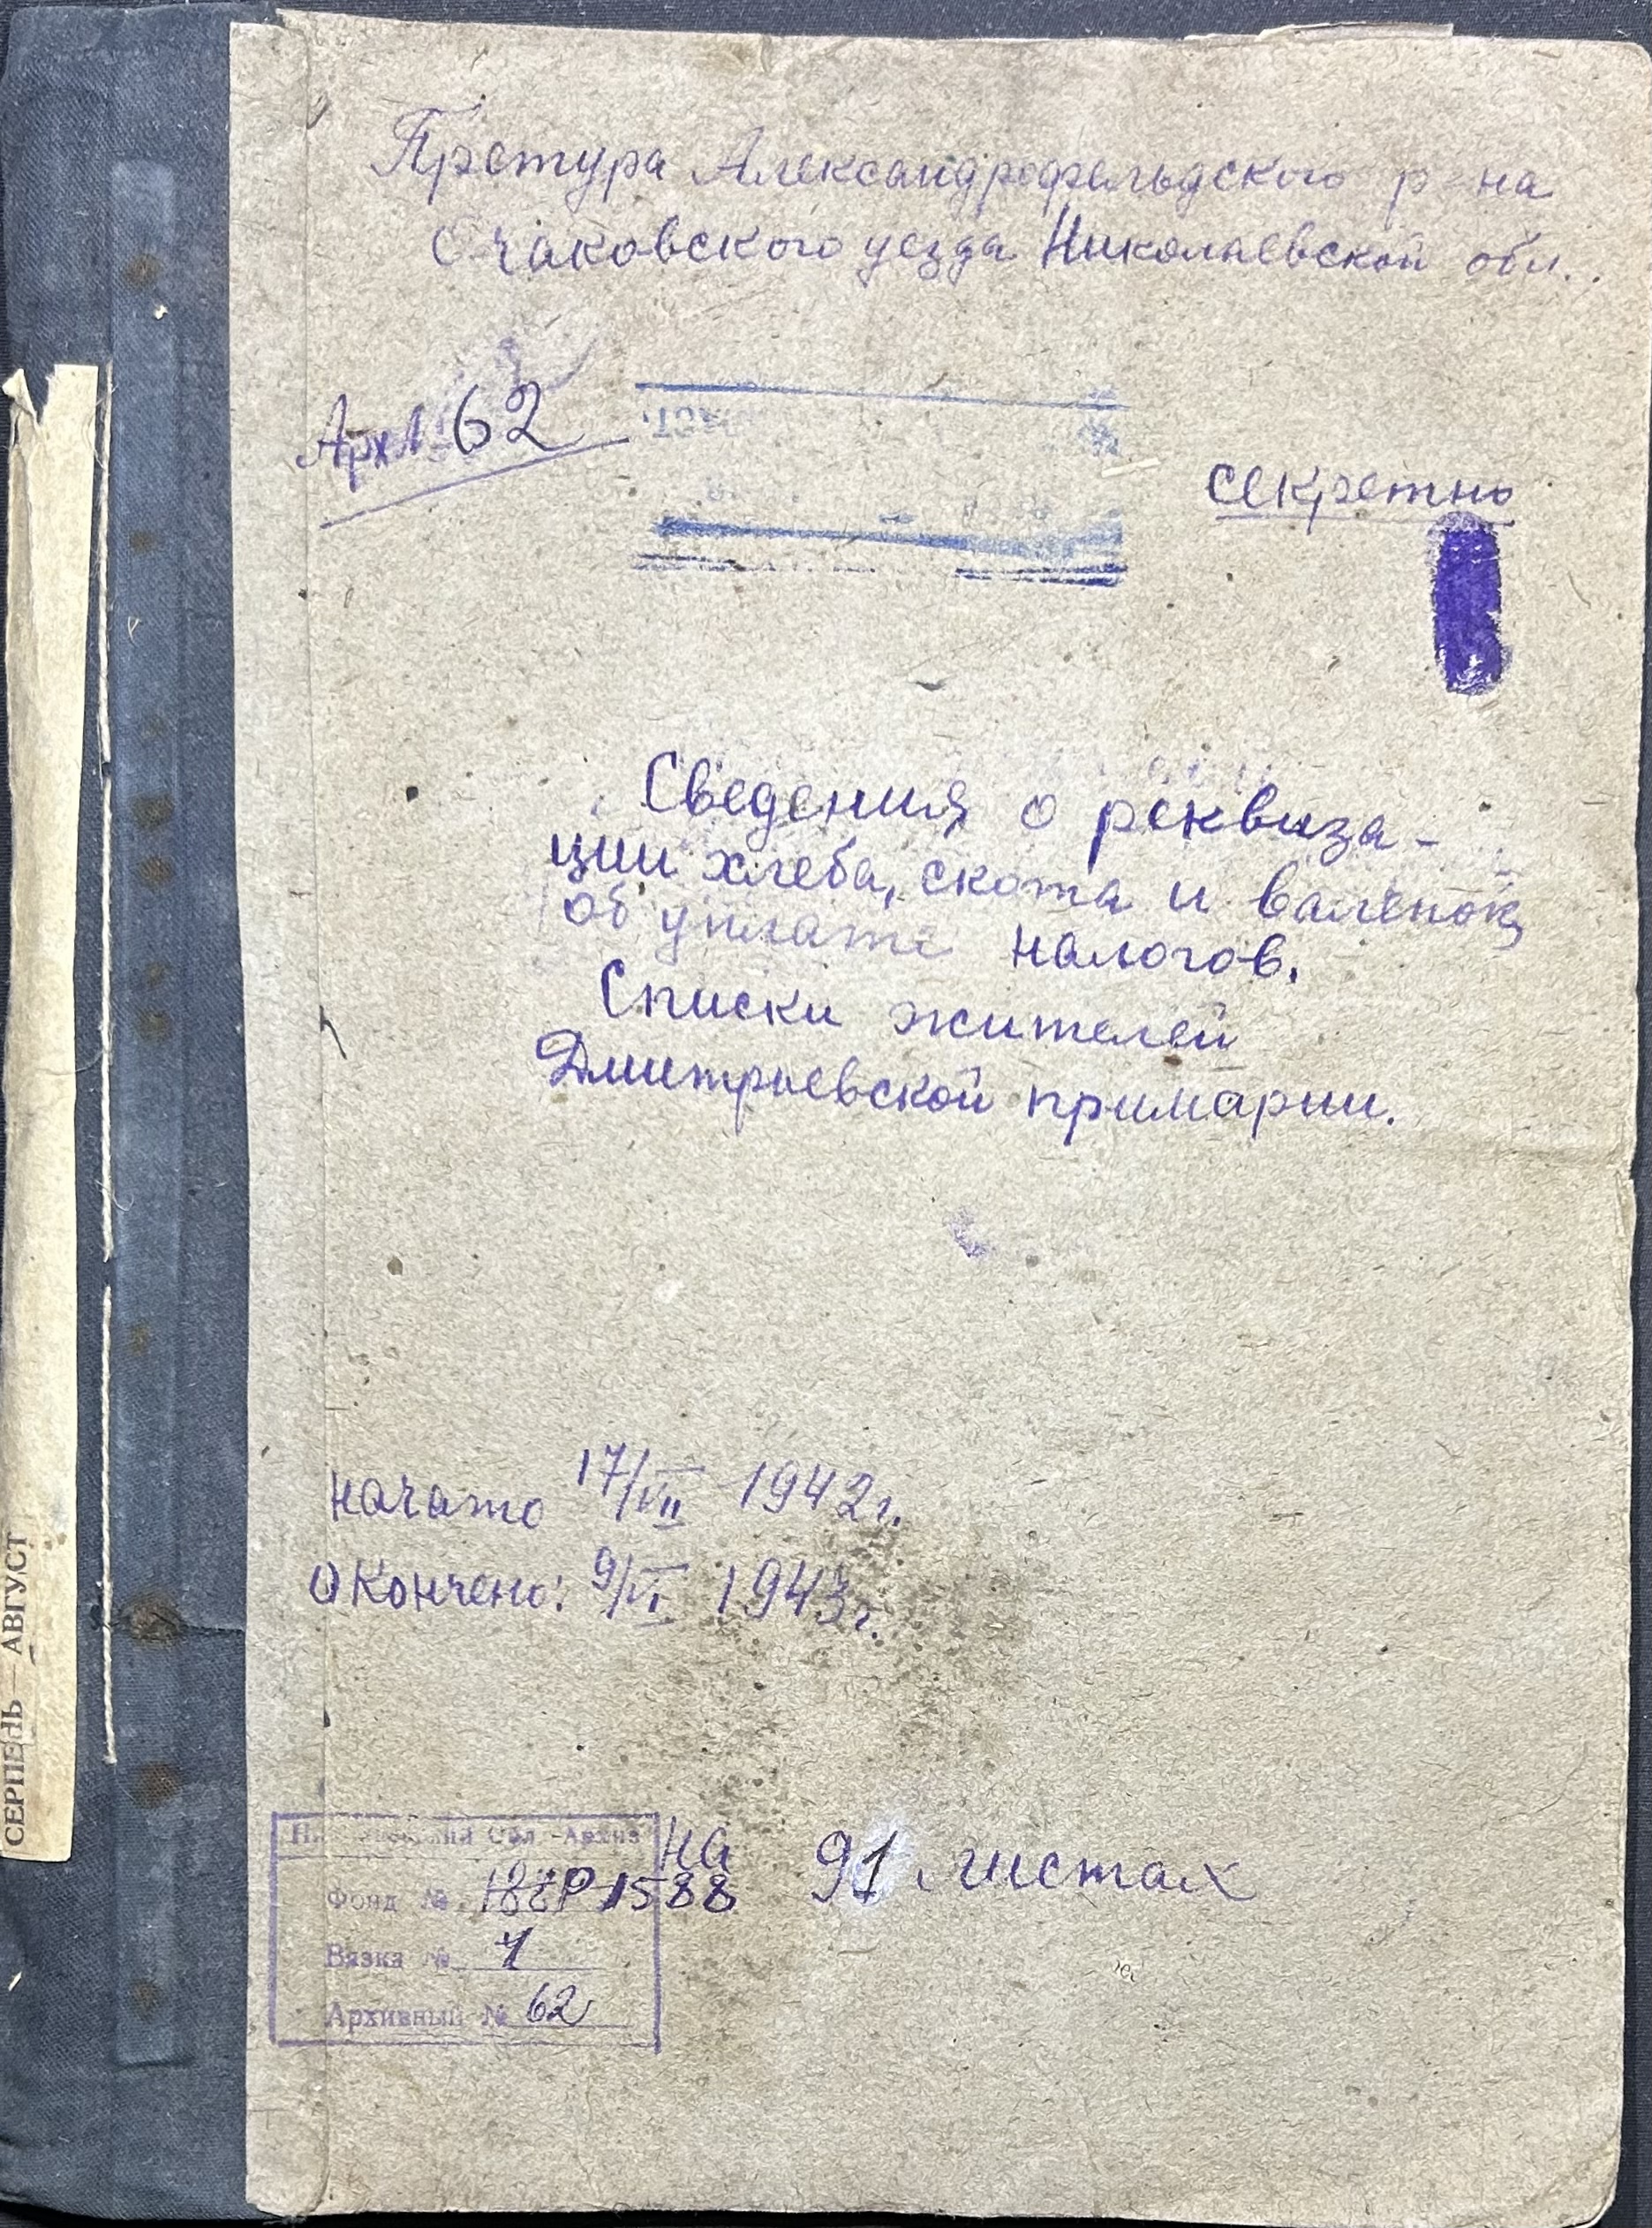 Претура Александрофельдского р-на
Очаковского уезда Николаевской обл.
Арх № 62
секретно
Сведения о реквиза-
ции хлеба, скота и валенок,
об уплате налогов.
Списки жителей
Дмитриевской примарии.
начато 17/VII 1942г.
окончено: 9/VI 1943г.
на 91 листах
Обл.-Архив
Фонд № Р-1588
Вязка № 4
Архивный № 62
СЕРПЕНЬ — АВГУСТ